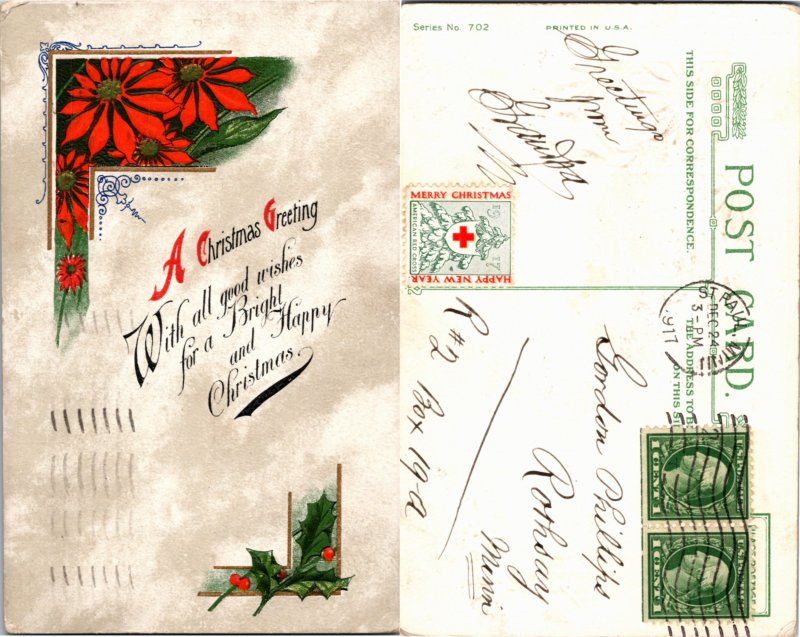 A Christmas Greeting
With all good wishes
for a Bright
and Happy
Christmas.
Series No. 702
PRINTED IN U.S.A.
THIS SIDE FOR CORRESPONDENCE.
POST CARD.
THE ADDRESS TO BE
ON THIS SI
Greetings
from
Grandpa
MERRY CHRISTMAS
AMERICAN RED CROSS
1917
HAPPY NEW YEAR
ST PAUL, M
DEC 24
3-PM
1917
Gordon Phillips
Rothsay
Minn
R#2 Box 19-a
1 CENT 1
1 CENT 1